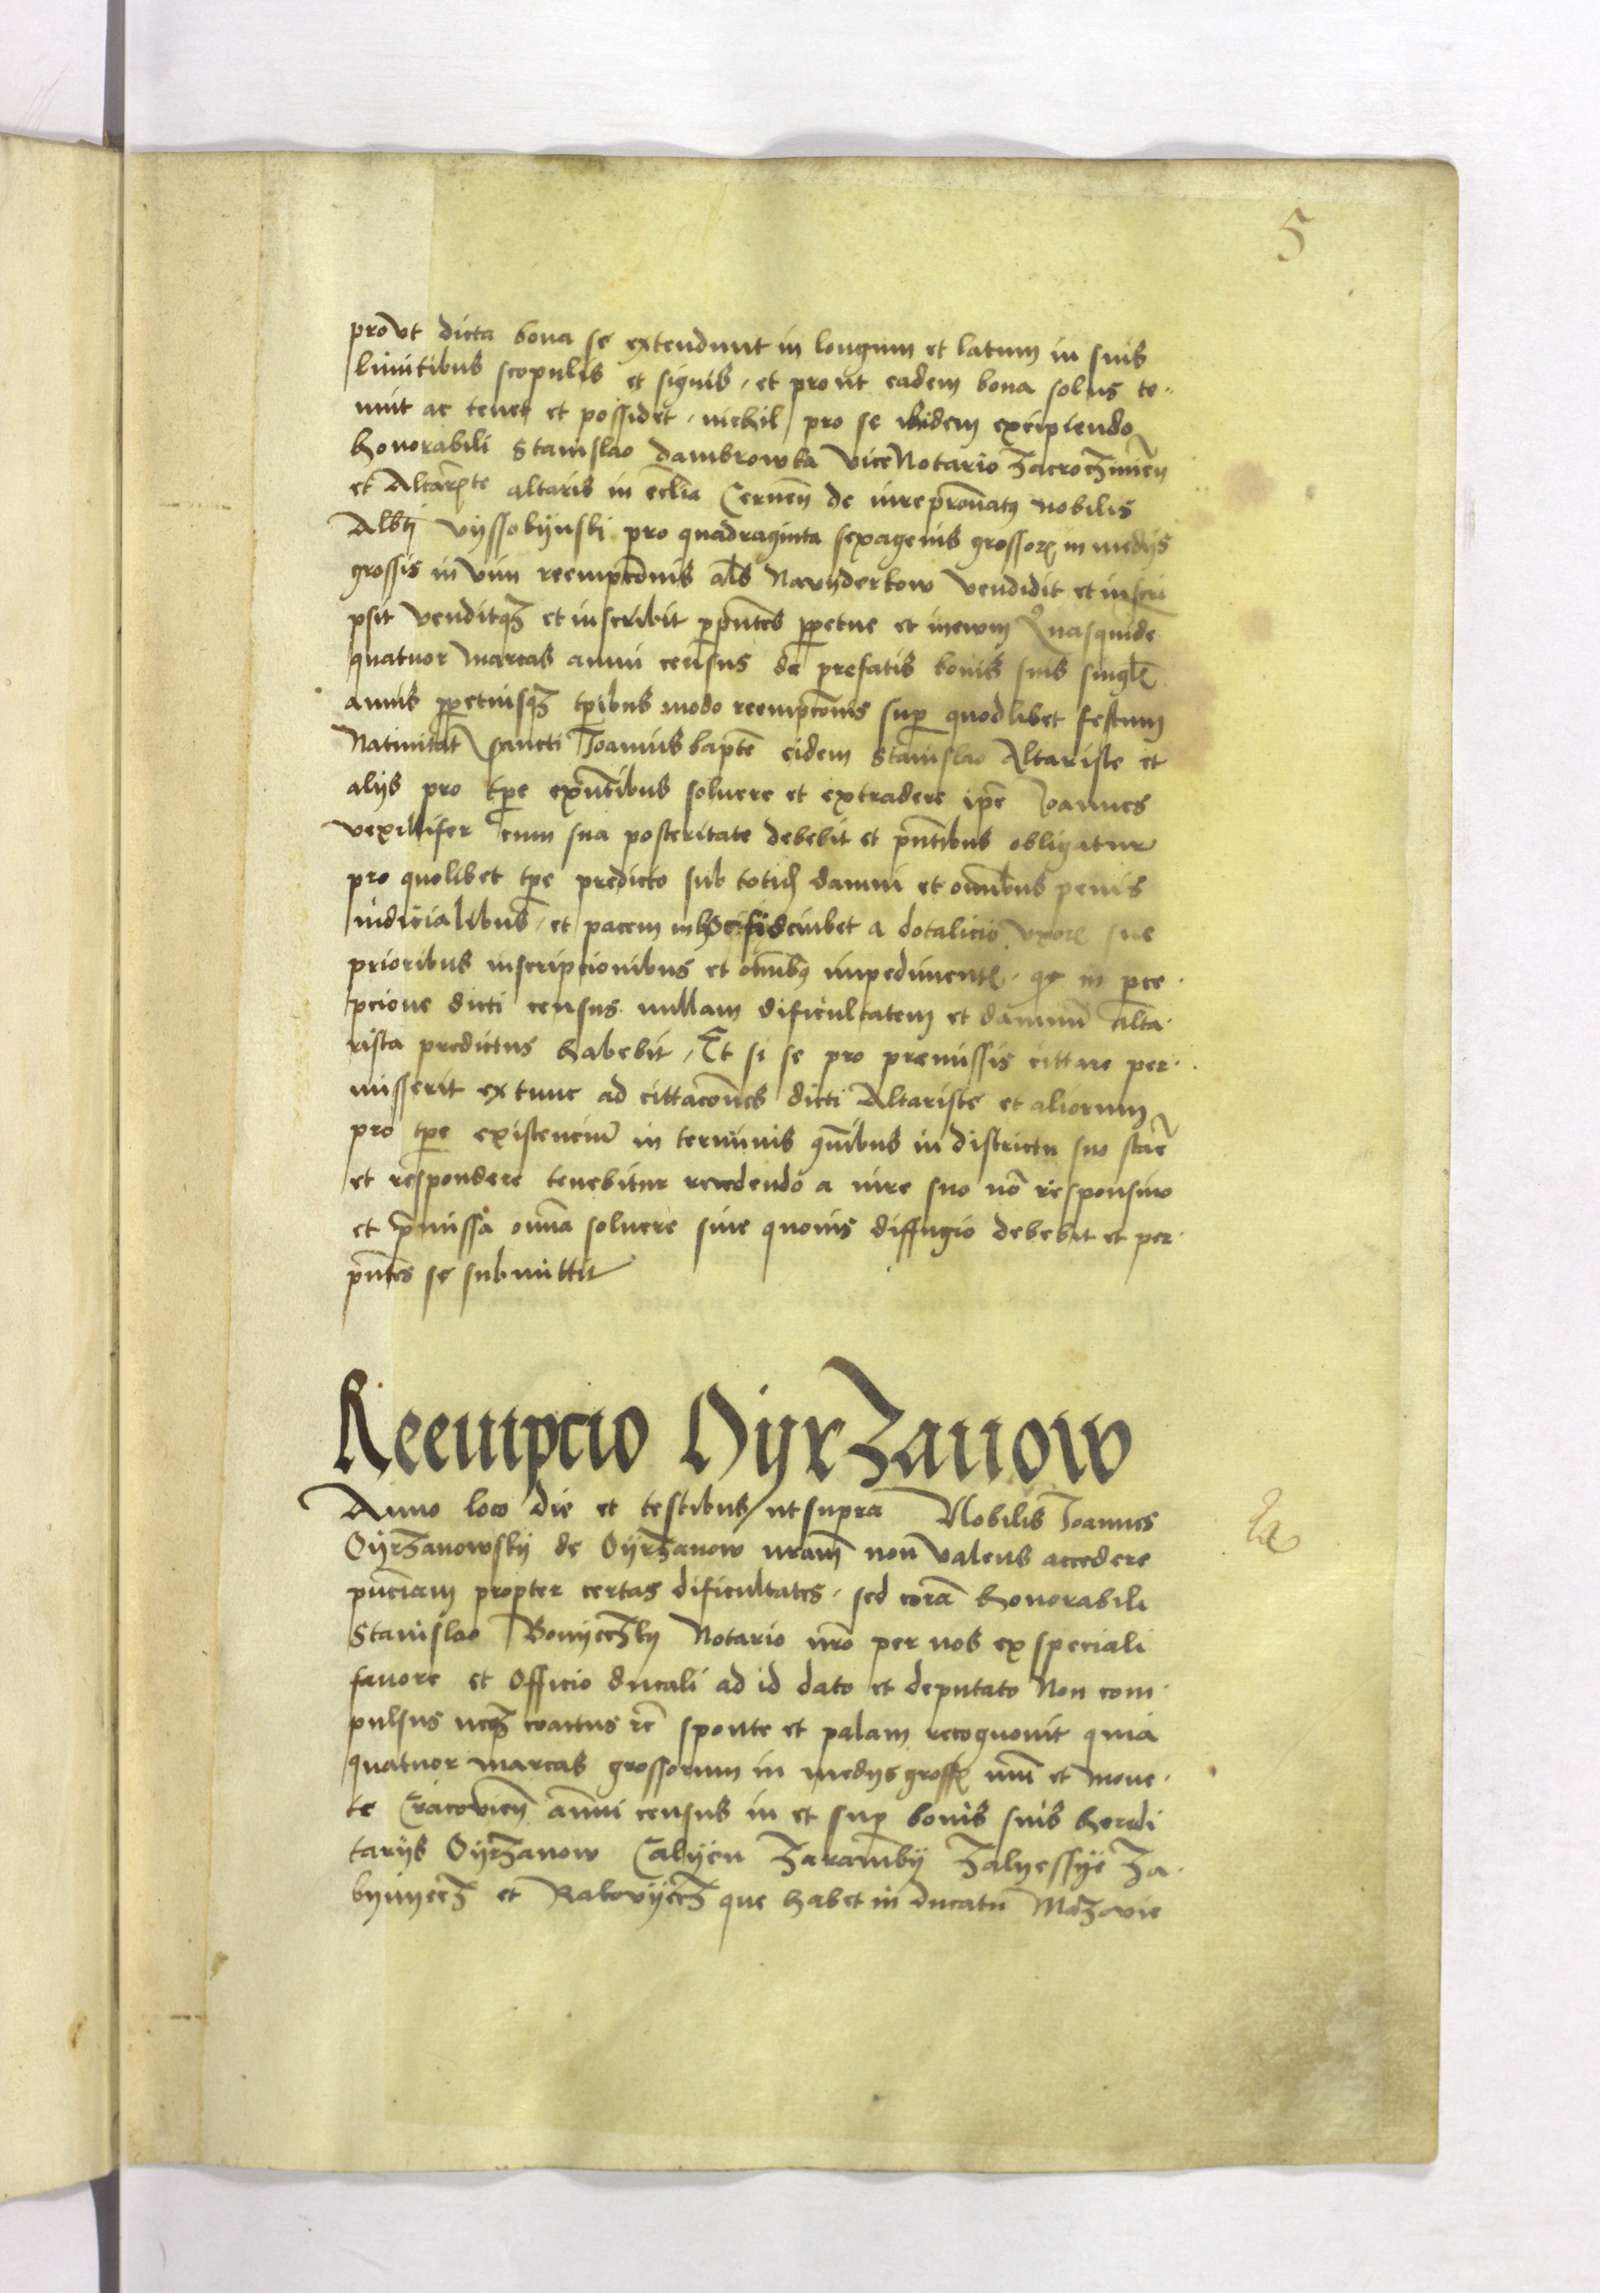 5
provt dicta bona se extendunt in longum et latum in suis
limitibus scopulis et signis, et prout eadem bona solus te-
nuit ac tenet et possidet, nichil pro se ibidem excipiendo
honorabili Stanislao Dambrowka ViceNotario Zacroczimeñ
et Altarʒte altaris in eclia Cerueñ de iurepronatus nobilis
Albti Vyssobynski pro quadraginta sexagenis grossorʒ in medys
grossis in vim reempcõnis als Navyderkow vendidit et inscri
psit venditqʒ et inscribit ppñtes ppetue et inewm Quasquidē
quatuor marcas annui census de prefatis bonis suis singlʒ
annis ppetuisqʒ tpibus modo reempcõnis sup quodlibet festum
Natiuitat Sancti Joannis bapte eidem Stanislao Altariste et
alys pro tpe exñtibus soluere et extradere ipe Joannes
vexillifer cum sua posteritate debebit et pñtibus obligatur
pro quolibet tpe predicto sub totidʒ damni et omibus penis
iudicialibus, et pacem a dotalicio vxorʒ sue
prioribus inscripcionibus et omibʒ impedimentʒ, qʒ in perce-
pcione dicti census nullam dificultatem et damnū alta-
rista predictus habebit, Et si se pro premissis cittare per-
misserit extunc ad cittacões dicti Altariste et aliorum
pro tpe existenciū in terminis qñibus in districtu suo stare
et respondere tenebitur recedendo a iure suo nõ responsiuo
et pmissa omia soluere sine quouis diffugio debebit et per-
pñtes se submittit
Reempcio OyrZanow
Anno loco die et testibus, ut supra Nobilis Joannes
Oyrʒanowsky de Oyrʒanow nram non valens accedere
pñciam propter certas dificultates, sed corā honorabili
Stanislao Bonyeczky Notario nro per nos ex speciali
fauore et Officio ducali ad id dato et deputato Non com-
pulsus neqʒ coactus rē sponte et palam recognouit quia
quatuor marcas grossorum in medys grossʒ nūi et mone-
te Cracovieñ annui census in et sup bonis suis heredi
tarys Oyrʒanow Calyen Zaramby Zalyessye Za-
bynyecz et Rakovyecz que habet in ducatu Mazovie